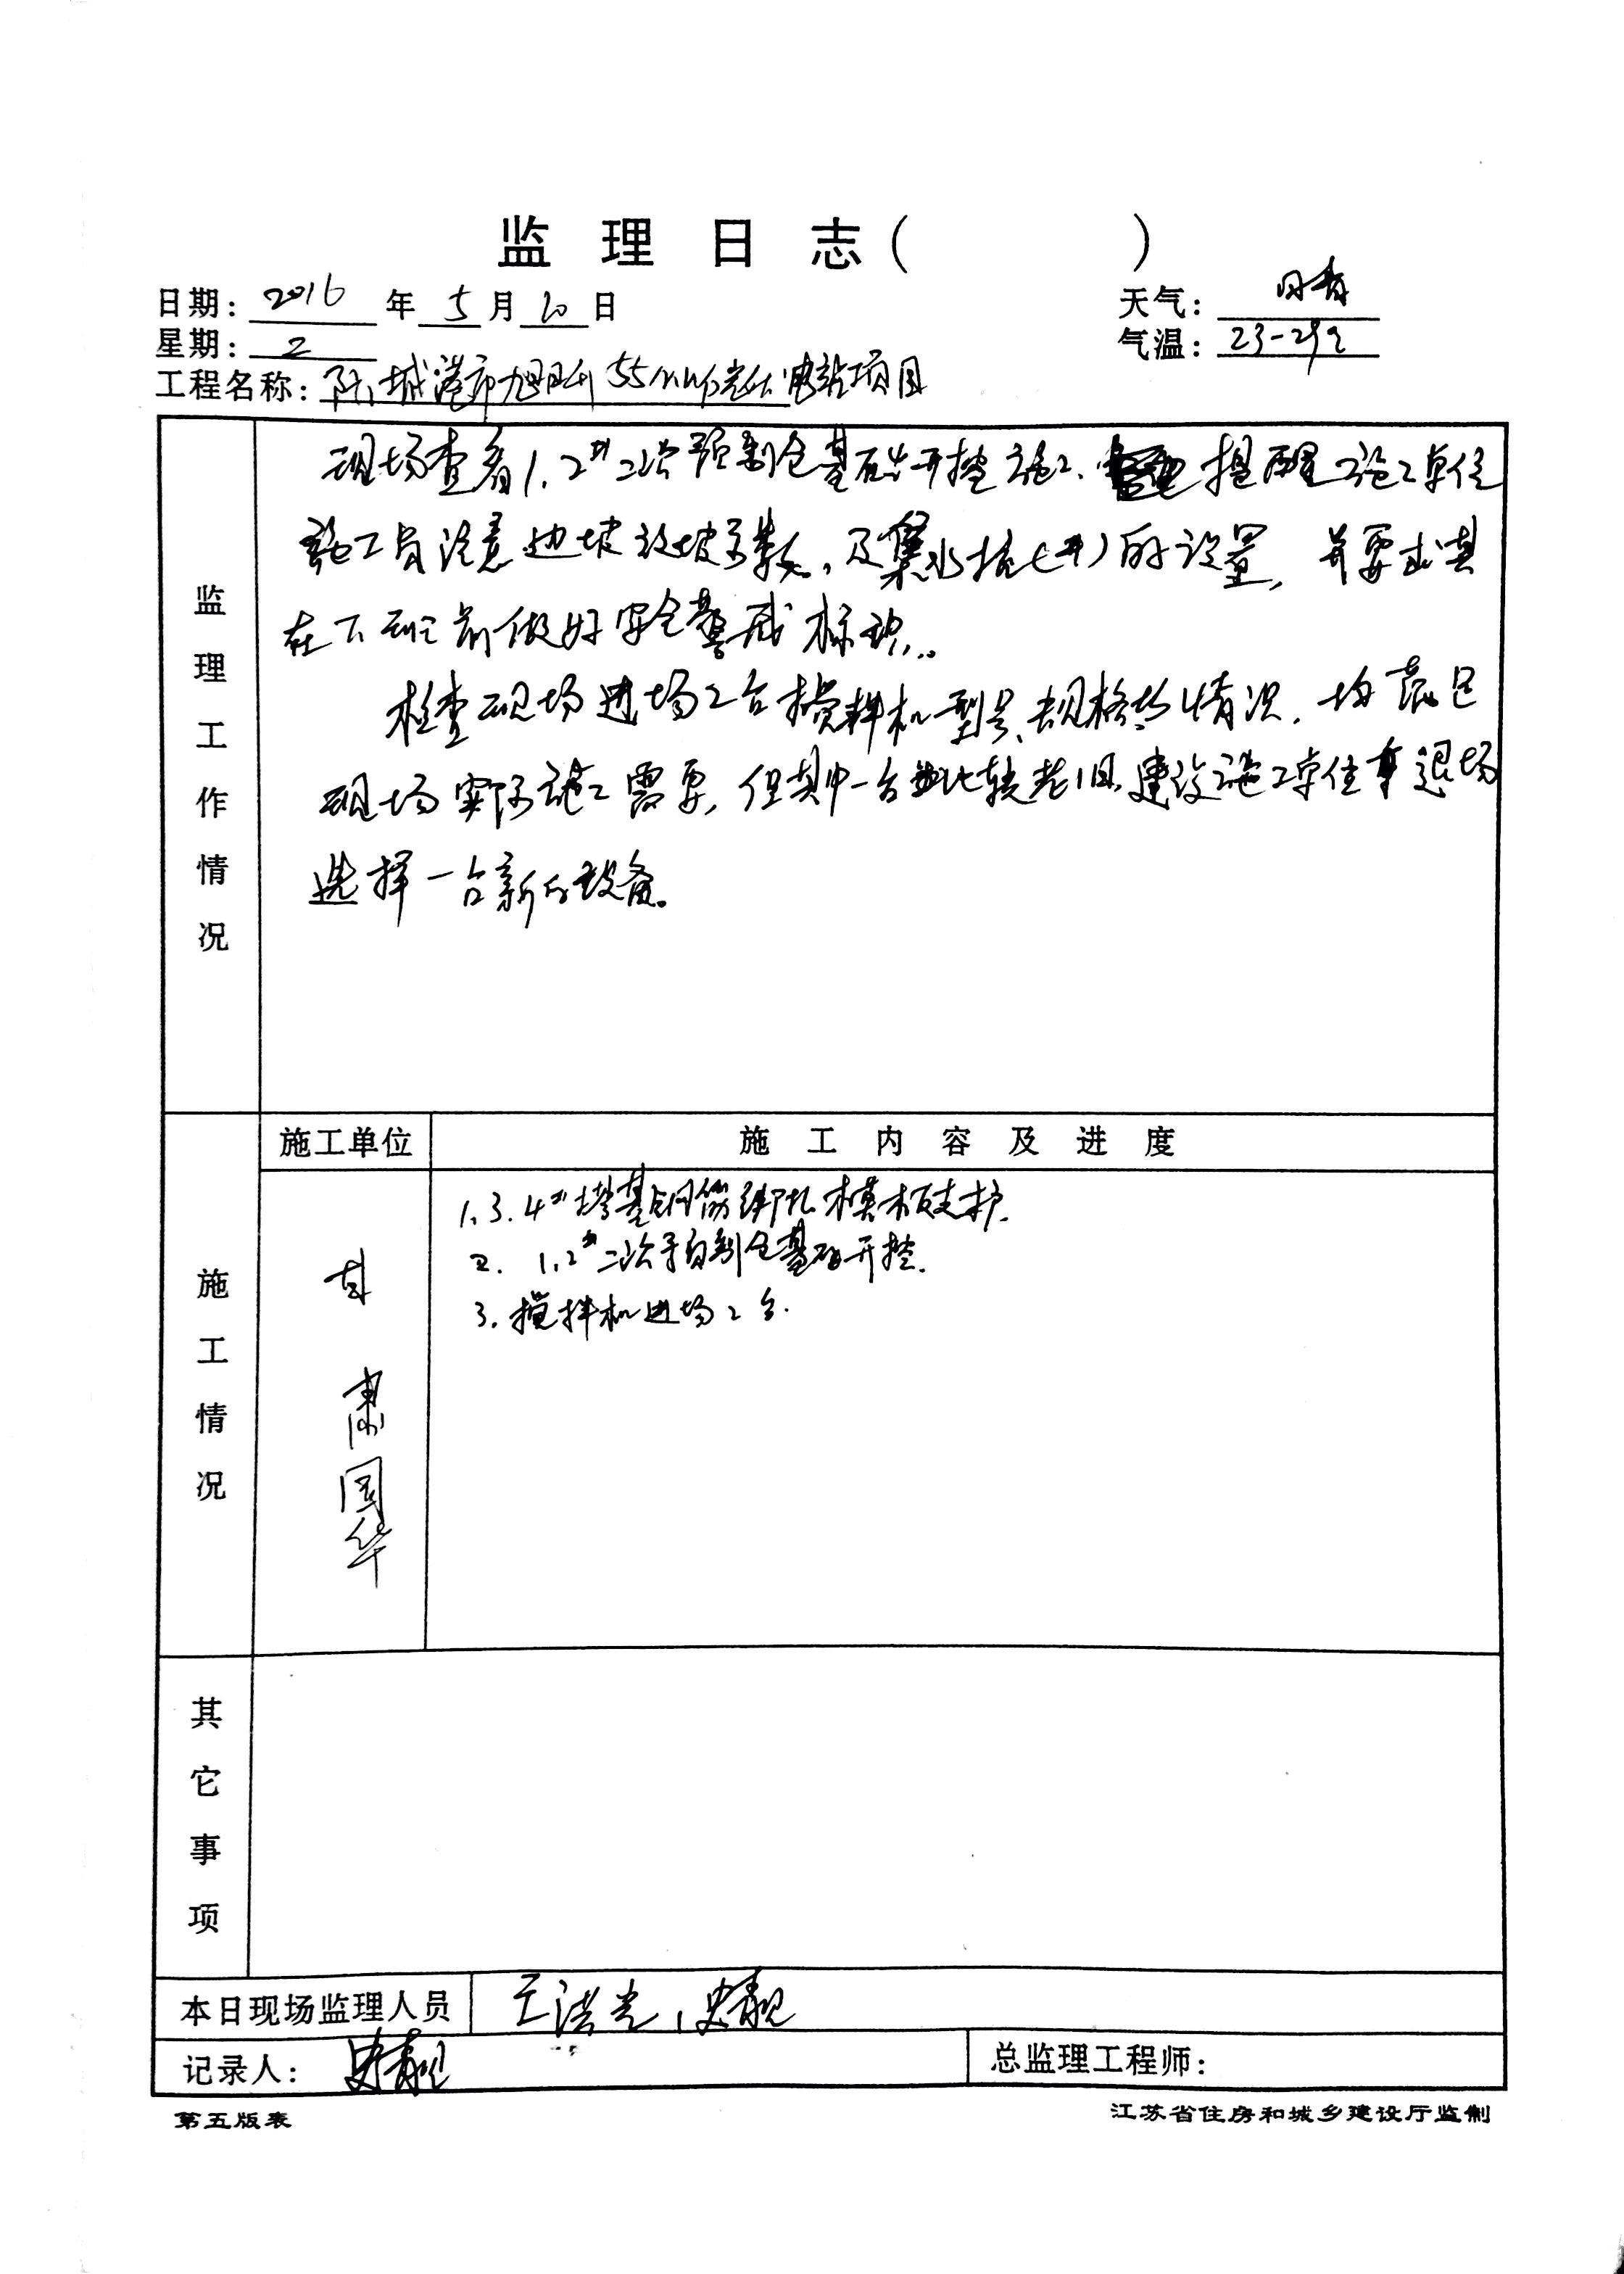 监理日志（ ）
日期：2016年5月10日
天气：晴
星期：2
气温：23-29℃
工程名称：防城港市 55MW光伏电站项目
监理工作情况
现场查看1.2#二次预制仓基础开挖施工. 提醒施工单位
施工员注意边坡放坡系数，及集水坑(井)的设置，并要求其
在下班前做好安全警戒标识..
检查现场进场2台搅拌机型号、规格等情况. 均满足
现场实际施工需要，但其中一台比较老旧，建设施工单位退场
选择一台新的设备。
施工情况
施工单位
施工内容及进度
1.3.4#塔基钢筋绑扎模板支护.
2. 1.2#二次预制仓基础开挖.
3. 搅拌机进场2台.
肃
国
华
其它事项
本日现场监理人员 王洪光、史靓
记录人：史靓
总监理工程师：
第五版表
江苏省住房和城乡建设厅监制